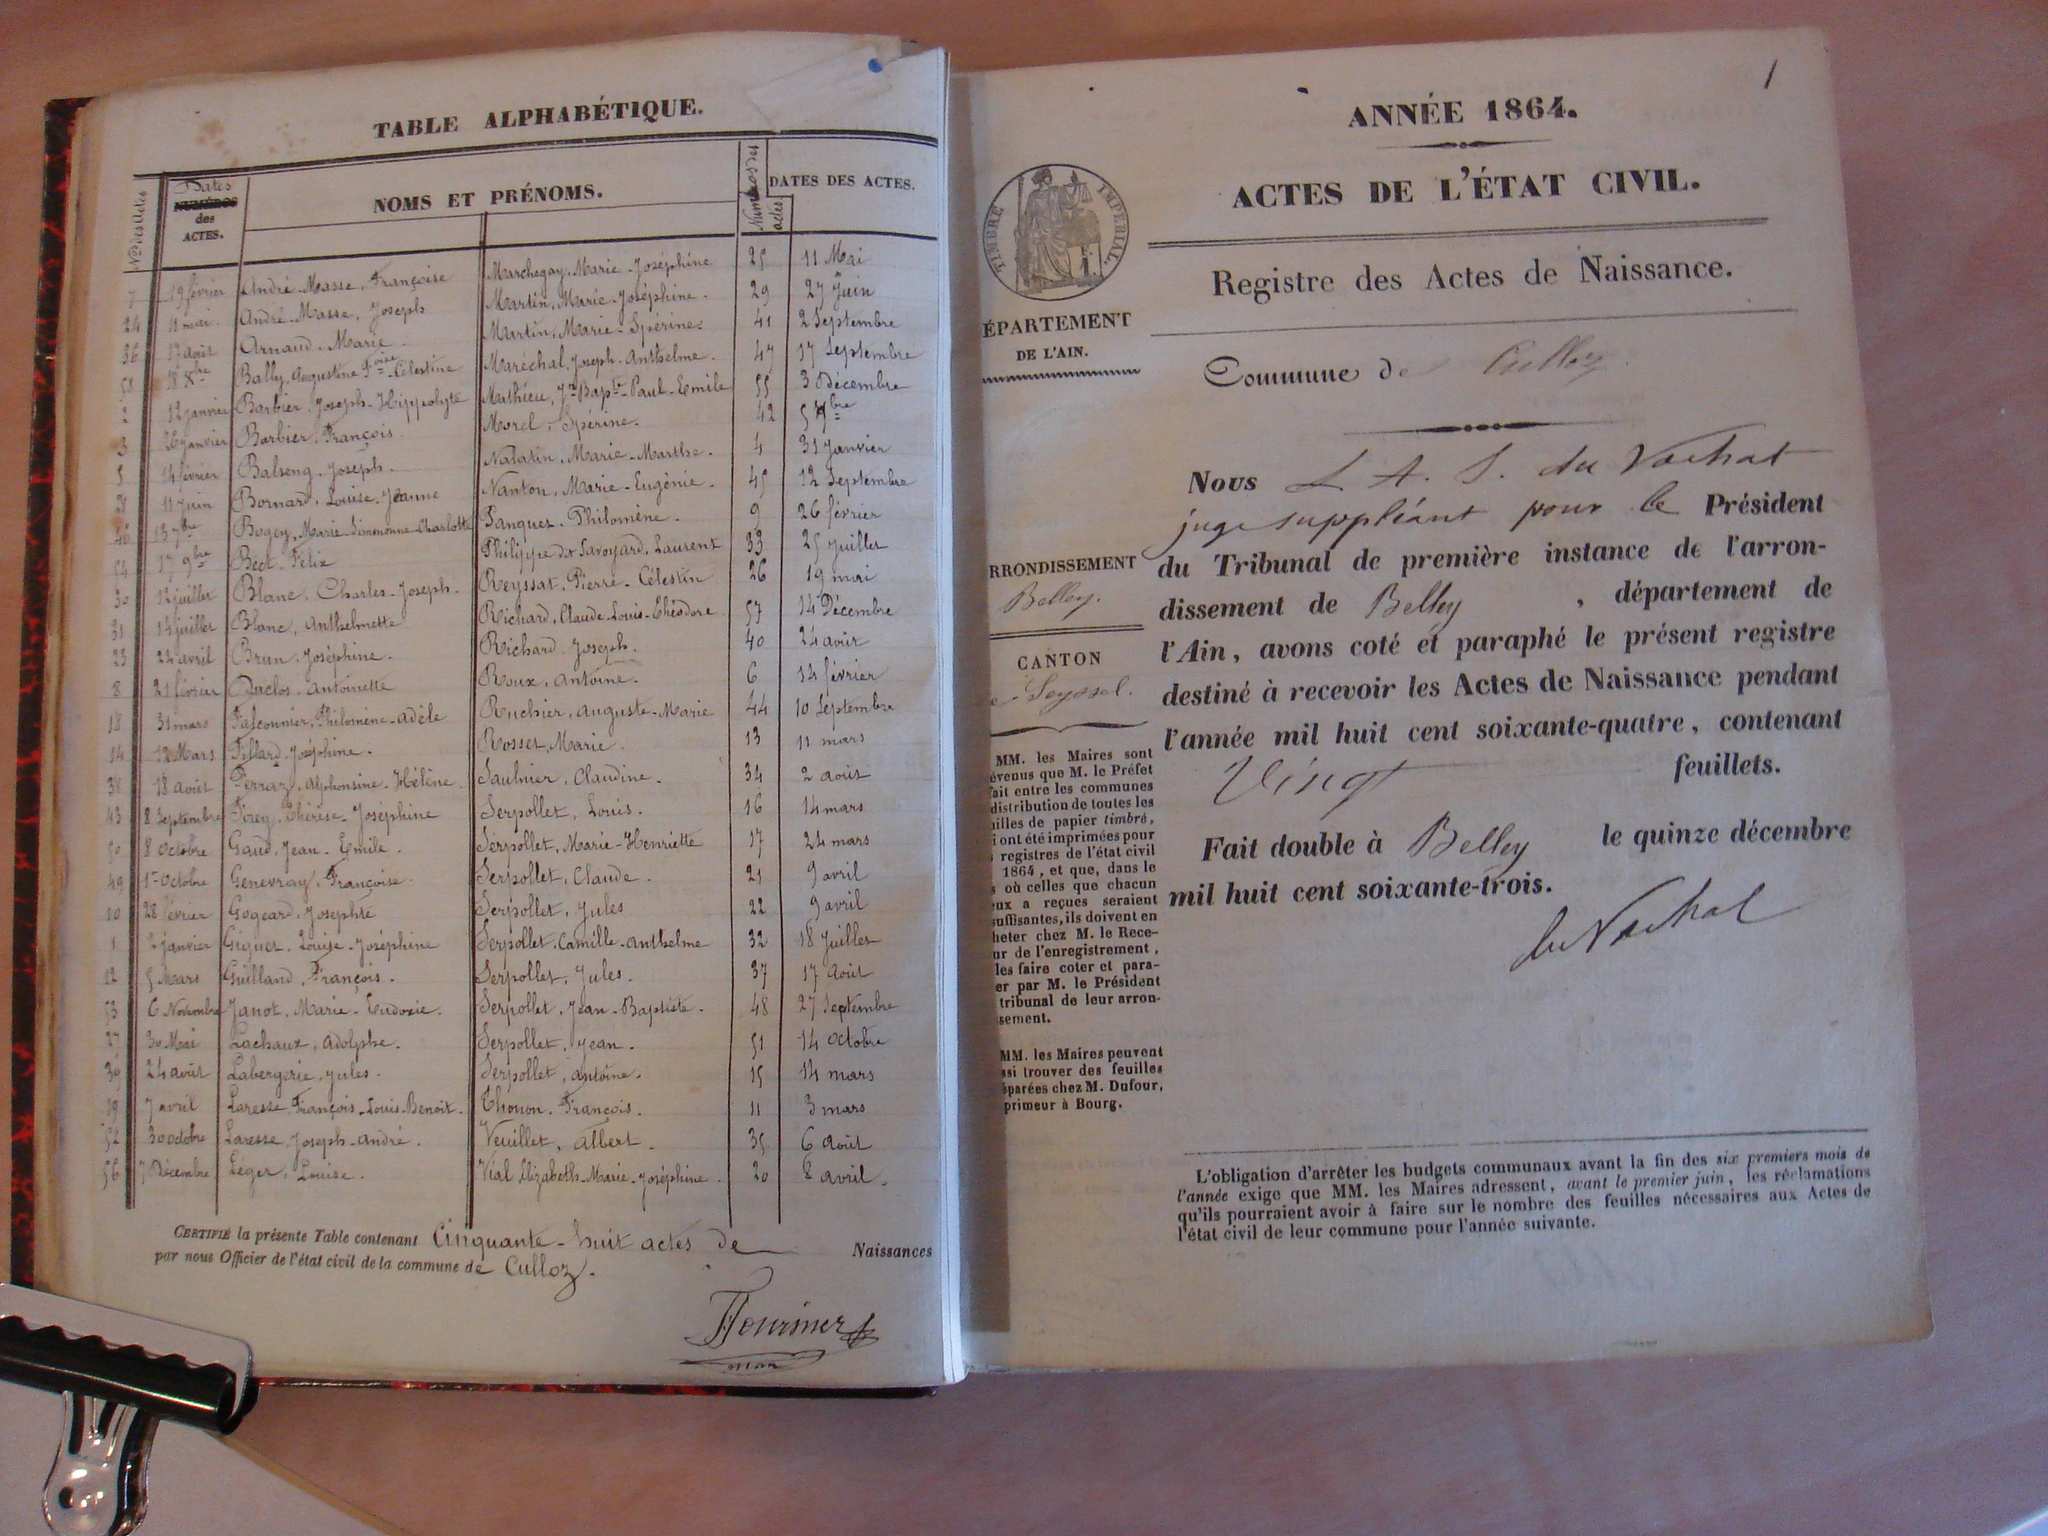 TABLE ALPHABÉTIQUE.
Nos des Actes
Dates
NUMÉROS
des
ACTES.
NOMS ET PRÉNOMS.
Numéros des
actes
DATES DES ACTES.
7 19 février André-Masse, Françoise Marchegay, Marie-Joséphine 25 11 Mai
24 11 mai. André-Masse, Joseph Martin, Marie-Joséphine. 29 27 Juin
36 17 août Arnaud, Marie. Martin, Marie-Spérine. 41 2 Septembre
58 18 Xbre Bally, Augustine Foise-Célestine Maréchal, Joseph-Anthelme. 47 17 Septembre
2 12 janvier Barbier, Joseph-Hippolyte Mathieu, Jn Bapte-Paul-Emile 55 3 Décembre
3 26 janvier Barbier, François. Morel, Spérine. 42 5 7bre
5 14 février Balseng, Joseph. Nalatin, Marie-Marthe. 4 31 Janvier
28 11 Juin Bornard, Louise-Jeanne Nanton, Marie-Eugénie. 45 12 Septembre
46 13 7bre Bogey, Marie-Simonne-Charlotte Panquet, Philomène. 9 26 février
54 17 9bre Bect, Félix Philippe dit Savoyard, Laurent 33 25 Juillet
30 12 juillet Blanc, Charles-Joseph. Reyssat, Pierre-Célestin 26 19 mai
31 14 juillet Blanc, Anthelmette Richard, Claude-Louis-Théodore. 57 14 Décembre
23 24 avril Brun, Joséphine. Richard, Joseph. 40 24 août
8 21 février Duclos, Antoinette Roux, Antoine. 6 14 février
18 31 mars Falconnier, Philomène-Adèle Ruchier, Auguste-Marie 44 10 Septembre
14 12 Mars Fillard, Joséphine. Rosset, Marie. 13 11 mars
38 18 août Ferraz, Alphonsine-Hélène. Saulnier, Claudine. 34 2 août
43 8 Septembre Firey, Thérèse-Joséphine Serpollet, Louis. 16 14 mars
50 8 Octobre Gaud, Jean-Emile. Serpollet, Marie-Henriette 17 24 mars
49 1er Octobre Genevray, Françoise. Serpollet, Claude. 21 9 avril
10 28 février Gogeard, Josephte Serpollet, Jules 22 9 avril
1 2 janvier Giguet, Louise-Joséphine Serpollet, Camille-Anthelme 32 18 Juillet
12 5 Mars Guilland, François. Serpollet, Jules. 37 17 août
53 6 Novembre Janot, Marie-Eudoxie. Serpollet, Jean-Baptiste. 48 27 Septembre
27 30 Mai Lachaux, Adolphe. Serpollet, Jean. 51 14 octobre
39 24 août Labergerie, Jules. Serpollet, Antoine. 15 14 mars
19 7 avril Laresse, François-Louis-Benoit. Thonon, François. 11 3 mars
52 30 octobre Laresse, Joseph-André. Veuillet, Albert. 35 6 août
56 7 Décembre Léger, Louise. Vial Elizabeth-Marie-Joséphine. 20 8 avril.
CERTIFIÉ la présente Table contenant Cinquante-huit actes de Naissances
par nous Officier de l'état civil de la commune de Culloz.
Fournier
1
ANNÉE 1864.
ACTES DE L'ÉTAT CIVIL.
TIMBRE IMPÉRIAL.
Registre des Actes de Naissance.
ÉPARTEMENT
DE L'AIN.
Commune de Culloz.
Nous L A. S. du Vachat
juge suppléant pour le Président
du Tribunal de première instance de l'arron-
dissement de Belley, département de
l'Ain, avons coté et paraphé le présent registre
destiné à recevoir les Actes de Naissance pendant
l'année mil huit cent soixante-quatre, contenant
Vingt feuillets.
Fait double à Belley le quinze décembre
mil huit cent soixante-trois.
du Vachat
RRONDISSEMENT
Belley.
CANTON
e Seyssel.
MM. les Maires sont
évenus que M. le Préfet
fait entre les communes
distribution de toutes les
uilles de papier timbré,
i ont été imprimées pour
s registres de l'état civil
1864, et que, dans le
s où celles que chacun
eux a reçues seraient
suffisantes, ils doivent en
heter chez M. le Rece-
ur de l'enregistrement,
les faire coter et para-
er par M. le Président
tribunal de leur arron-
ssement.
MM. les Maires peuvent
ssi trouver des feuilles
éparées chez M. Dufour,
primeur à Bourg.
L'obligation d'arrêter les budgets communaux avant la fin des six premiers mois de
l'année exige que MM. les Maires adressent, avant le premier juin, les réclamations
qu'ils pourraient avoir à faire sur le nombre des feuilles nécessaires aux Actes de
l'état civil de leur commune pour l'année suivante.